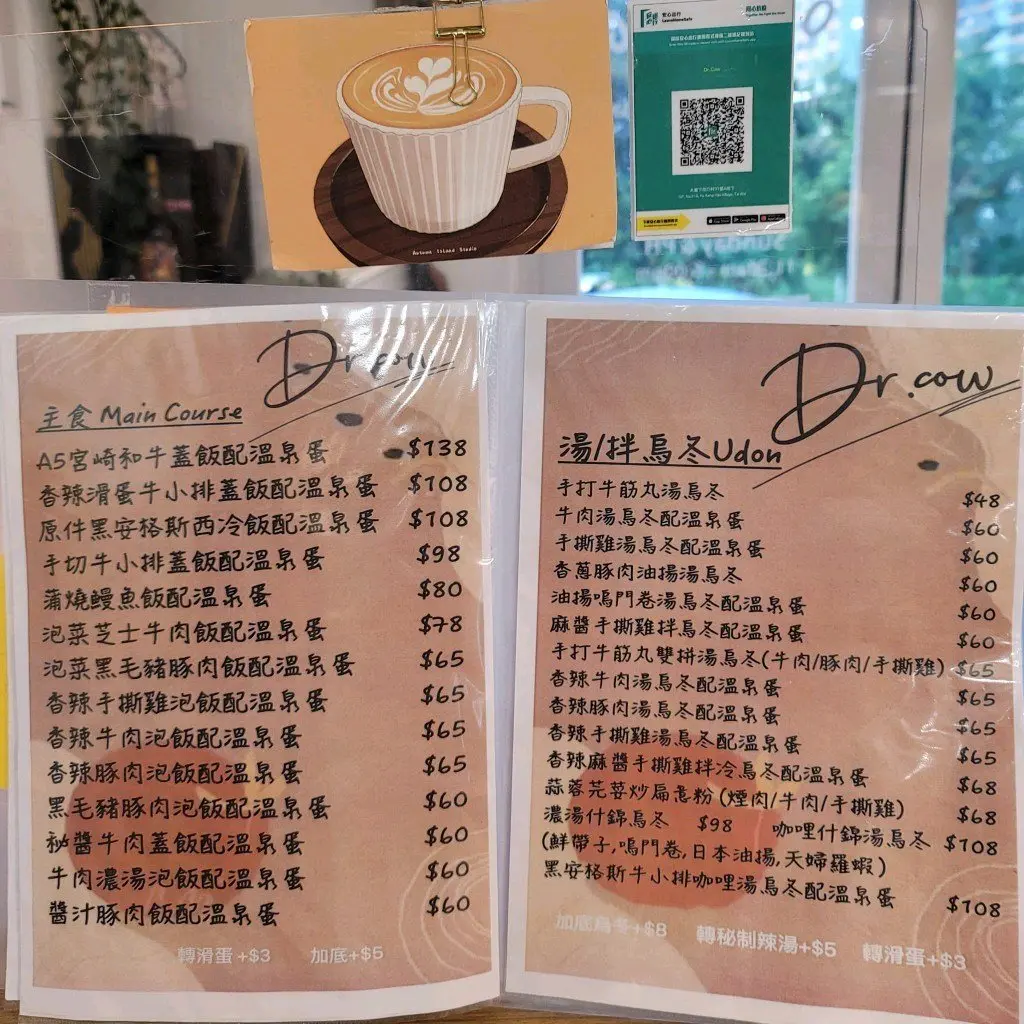 Autumn Island Studio
安心出行
LeaveHomeSafe
同心抗疫
Together, We Fight the Virus!
Dr. Cow
App Store
Google Play
Dr.cow
主食 Main Course
A5宮崎和牛蓋飯配溫泉蛋 $138
香辣滑蛋牛小排蓋飯配溫泉蛋 $108
原件黑安格斯西冷飯配溫泉蛋 $108
手切牛小排蓋飯配溫泉蛋 $98
蒲燒鰻魚飯配溫泉蛋 $80
泡菜芝士牛肉飯配溫泉蛋 $78
泡菜黑毛豬豚肉飯配溫泉蛋 $65
香辣手撕雞泡飯配溫泉蛋 $65
香辣牛肉泡飯配溫泉蛋 $65
香辣豚肉泡飯配溫泉蛋 $65
黑毛豬豚肉泡飯配溫泉蛋 $60
秘醬牛肉蓋飯配溫泉蛋 $60
牛肉濃湯泡飯配溫泉蛋 $60
醬汁豚肉飯配溫泉蛋 $60
轉滑蛋+$3 加底+$5
Dr.cow
湯/拌烏冬Udon
手打牛筋丸湯烏冬 $48
牛肉湯烏冬配溫泉蛋 $60
手撕雞湯烏冬配溫泉蛋 $60
香蔥豚肉油揚湯烏冬 $60
油揚鳴門卷湯烏冬配溫泉蛋 $60
麻醬手撕雞拌烏冬配溫泉蛋 $60
手打牛筋丸雙拼湯烏冬(牛肉/豚肉/手撕雞) $65
香辣牛肉湯烏冬配溫泉蛋 $65
香辣豚肉湯烏冬配溫泉蛋 $65
香辣手撕雞湯烏冬配溫泉蛋 $65
香辣麻醬手撕雞拌冷烏冬配溫泉蛋 $68
蒜蓉芫荽炒扁意粉(煙肉/牛肉/手撕雞) $68
濃湯什錦烏冬 $98 咖哩什錦湯烏冬 $108
(鮮帶子,鳴門卷,日本油揚,天婦羅蝦)
黑安格斯牛小排咖哩湯烏冬配溫泉蛋 $108
加底烏冬+$8 轉秘制辣湯+$5 轉滑蛋+$3